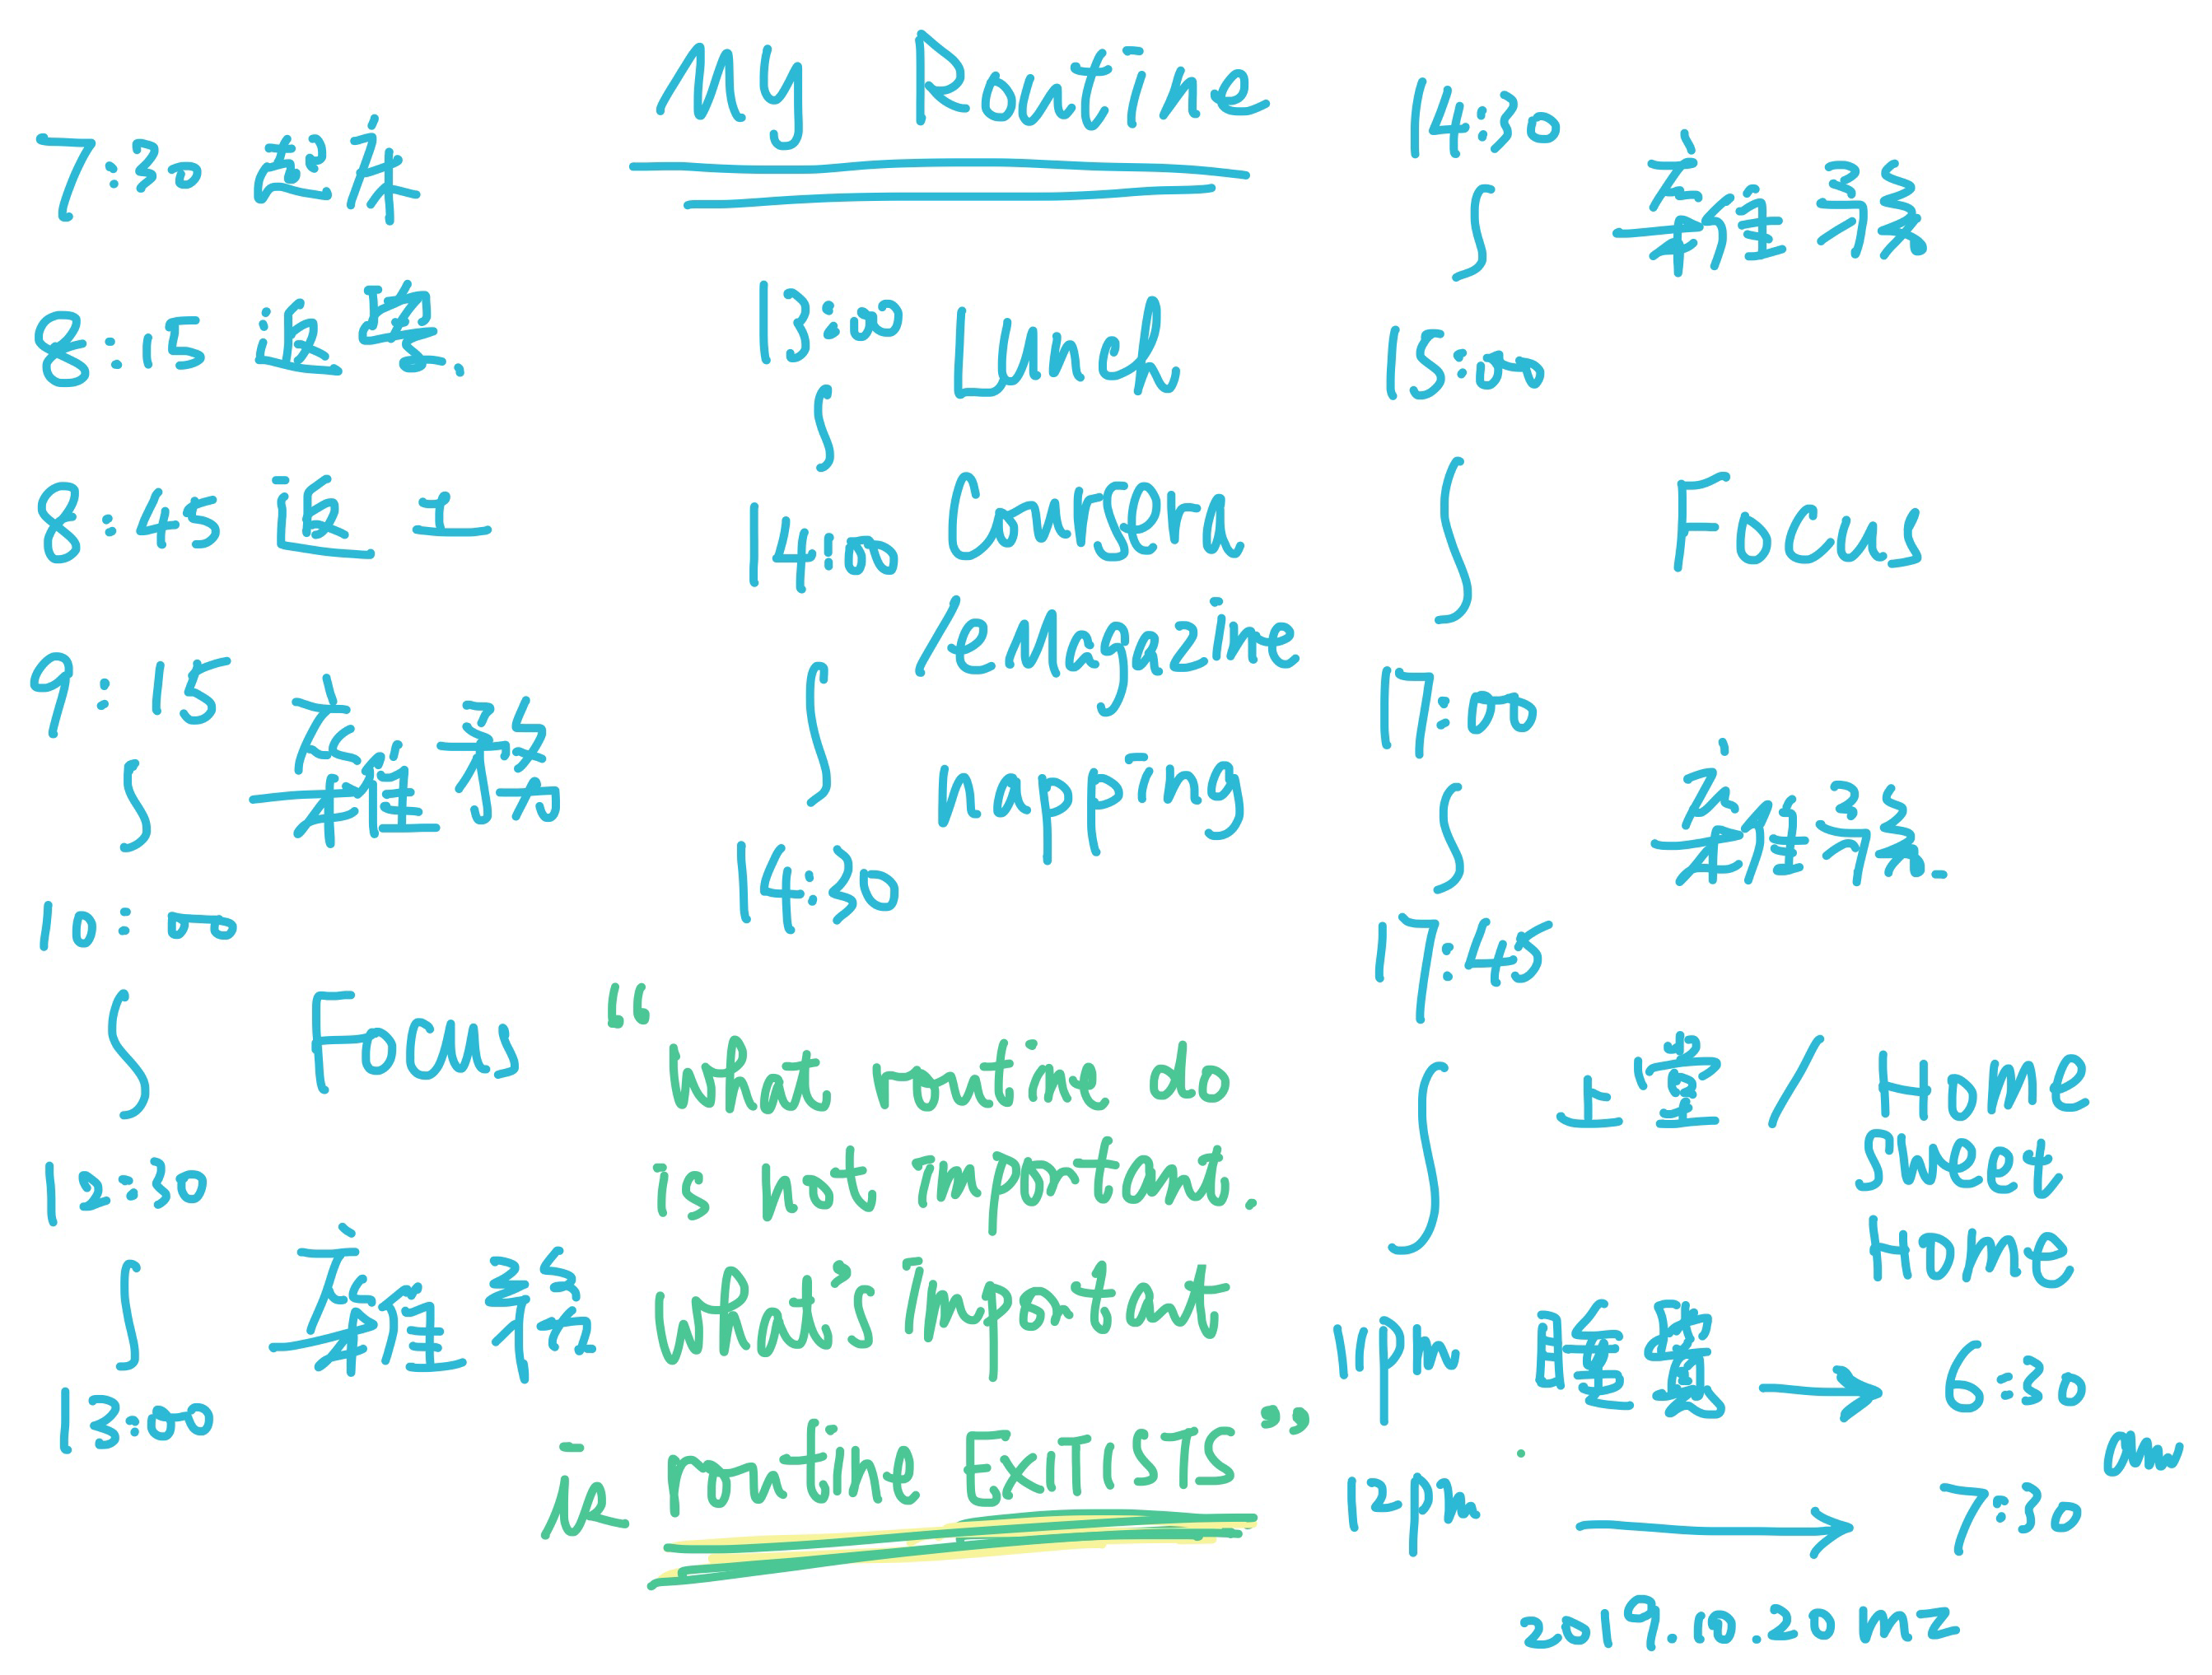 My Routine
7:30 起床
8:15 返學.
8:45 返工
9:15
雜務
10:00
Focus
12:30
雜務
13:00
13:00 Lunch
14:00
Coursera
/eMagazine
napping
14:30
14:30
雜務
15:00
Focus
17:00
雜務.
17:45
上堂 / Home
Sweet
Home
11pm 睡覺 → 6:30
am
12pm → 7:30
“What routine do
is not important.
What's important
is routine ExiTisTS”
2019.10.20 mz